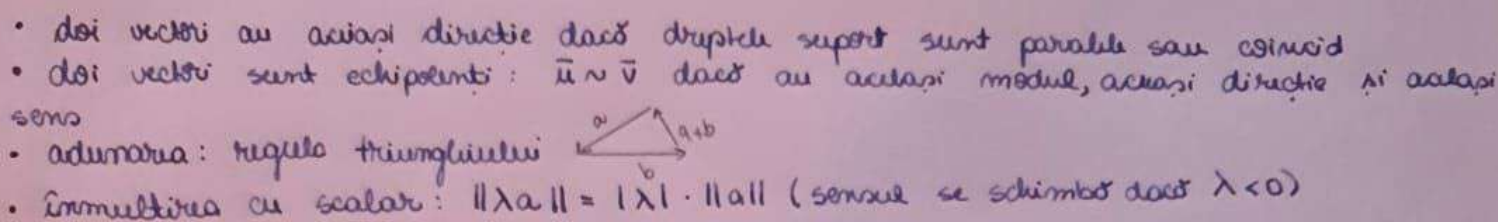 • doi vectori au aceiași directie dacă dreptele suport sunt paralele sau coincid
• doi vectori sunt echipolenti: ū ~ v̄ dacă au acelasi modul, aceeasi directie si acelasi
sens
• adunarea: regula triunghiului a a+b
b
• înmultirea cu scalar: ||λa|| = |λ| · ||a|| (sensul se schimbă dacă λ<0)